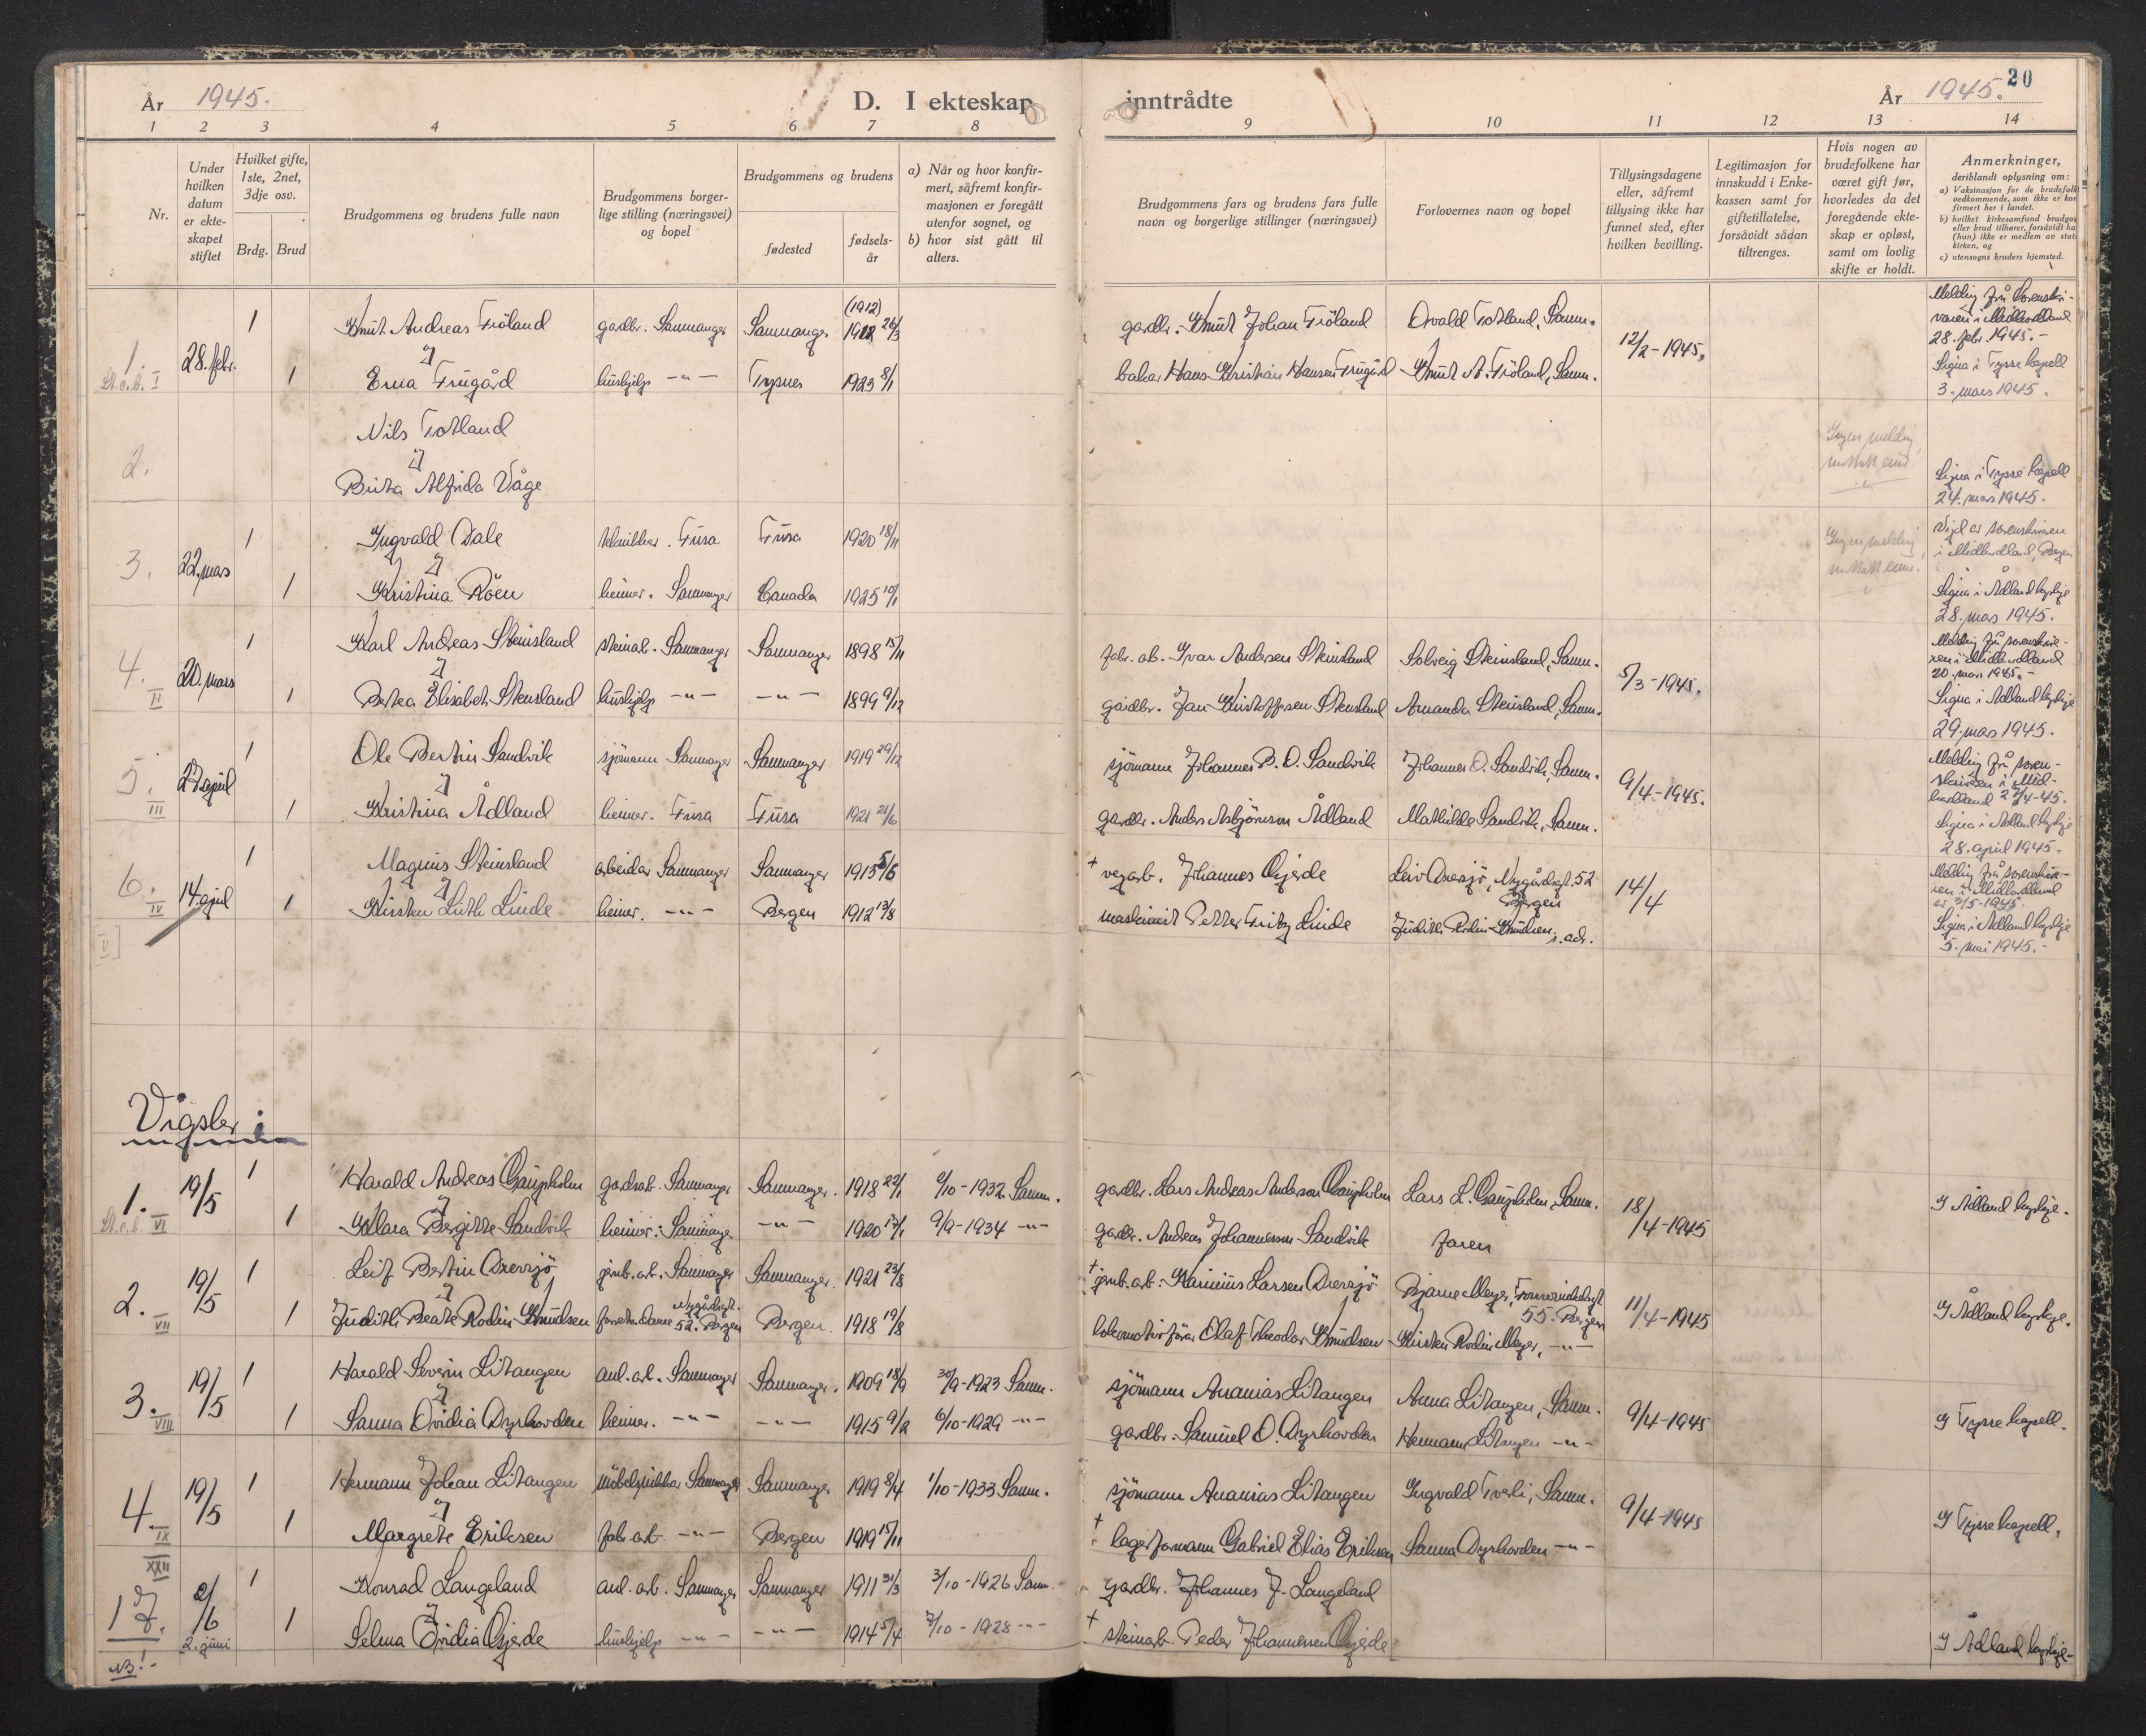 År 1945.
D. I ekteskap inntrådte
År 1945. 20
1 2 3 4 5 6 7 8 9 10 11 12 13 14
Nr.
Under hvilken datum er ekteskapet stiftet
Hvilket gifte, 1ste, 2net, 3dje osv.
Brdg. Brud
Brudgommens og brudens fulle navn
Brudgommens borgerlige stilling (næringsvei) og bopel
Brudgommens og brudens
fødested
fødselsår
a) Når og hvor konfirmert, såfremt konfirmasjonen er foregått utenfor sognet, og
b) hvor sist gått til alters.
Brudgommens fars og brudens fars fulle navn og borgerlige stillinger (næringsvei)
Forlovernes navn og bopel
Tillysingsdagene eller, såfremt tillysing ikke har funnet sted, efter hvilken bevilling.
Legitimasjon for innskudd i Enkekassen samt for giftetillatelse, forsåvidt sådan tiltrenges.
Hvis nogen av brudefolkene har været gift før, hvorledes da det foregående ekteskap er opløst, samt om lovlig skifte er holdt.
Anmerkninger, deriblandt oplysning om:
a) Vaksinasjon for de brudefolk vedkommende, som ikke er kon firmert her i landet.
b) hvilket kirkesamfund brudgom eller brud tilhører, forsåvidt han (hun) ikke er medlem av stats kirken, og
c) utensogns bruders hjemsted.
1. St.c.b. I 28. febr. 1 Knut Andreas Fröland gardbr. Samnanger Samnanger (1912) 1912 26/3 gardbr. Knut Johan Fröland Osvald Totland, Samn. 12/2-1945. Melding frå Sorenskrivaren i Midhordland 28. febr. 1945.-
1 Erna Frugård hushjelp -"- 1923 8/1 bakar Hans Kristian Hansen Frugård Knut A. Fröland, Samn. Signa i Tysse kapell 3. mars 1945.
2. Nils Totland
Brita Alfrida Våge Ingen melding mottatt enno. Signa i Tysse kapell 24. mars 1945.
3. 22. mars 1 Ingvald Dale Fusa Fusa 1920 18/11 Ingen melding mottatt enno. Vigd av sorenskrivaren i Midhordland, Bergen
1 Kristina Röen heimev. Samnanger Canada 1925 10/1 Signa i Ådland kyrkje 28. mars 1945.
4. II 20. mars 1 Karl Andreas Steinsland steinarb. Samnanger Samnanger 1898 15/11 fabr. arb. Ivar Andersen Steinsland Solveig Steinsland, Samn. 5/3-1945. Melding frå sorenskrivaren i Midhordland 20. mars 1945.-
1 Bertea Elisabet Stensland hushjelp -"- -"- 1899 9/12 gardbr. Jan Kristoffersen Stensland Amanda Steinsland, Samn. Signa i Ådland kyrkje 29. mars 1945.
5. III 27. april 1 Ole Bertin Sandvik sjömann Samnanger Samnanger 1919 29/12 sjömann Johannes B. O. Sandvik Johannes O. Sandvik, Samn. 9/4-1945. Melding frå sorenskrivaren i Midhordland 27/4-45.
1 Kristina Ådland heimev. Fusa Fusa 1921 21/6 gardbr. Anders Asbjörnson Ådland Mathilde Sandvik, Samn. Signa i Ådland kyrkje 28. april 1945.
6. IV [V] 14. april 1 Magnus Steinsland arbeidar Samnanger Samnanger 1915 5/6 + vegarb. Johannes Gjerde Leiv Översjö, Nygårdsgt. 52 Bergen 14/4 Melding frå sorenskrivaren i Midhordland av 2/5-1945.
1 Kirsten Luth Linde heimev. -"- Bergen 1912 13/8 maskinist Petter Fritz Linde Judith Rodin-Knudsen, s. adr. Signa i Ådland kyrkje 5. mai 1945.-
Vigsler:
1. St.c.b. VI 19/5 1 Harald Andreas Gaupholm gardsarb. Samnanger Samnanger. 1918 22/1 2/10-1932 Samn. gardbr. Lars Andreas Anderson Gaupholm Lars L. Gaupholm, Samn. 18/4-1945 I Ådland kyrkje.
1 Klara Bergitte Sandvik heimev. Samnanger -"- 1920 17/1 9/9-1934 -"- gardbr. Andreas Johannesson Sandvik faren
2. VII 19/5 1 Leif Bertin Översjö jernb.arb. Samnanger Samnanger. 1921 23/8 + jernb.arb. Karinius Larsen Översjö Bjarne Meyer, 55. Bergen 11/4-1945 I Ådland kyrkje.
1 Judith Beate Rodin-Knudsen Nygårdsgt. 52. Bergen Bergen. 1918 19/8 lokomotivförar Olaf Theodor Knudsen Kirsten Rodin Meyer, -"-
3. VIII 19/5 1 Harald Severin Litangen anl. arb. Samnanger Samnanger. 1909 18/9 30/9-1923 Samn. sjömann Ananias Litangen Anna Litangen, Samn. 9/4-1945 I Tysse kapell.
1 Sanna Ovidia Dyrhovden heimev. -"- -"- 1915 9/2 6/10-1929 -"- gardbr. Samuel O. Dyrhovden Hermann Litangen -"-
4. IX 19/5 1 Hermann Johan Litangen möbelsnikkar Samnanger Samnanger 1919 8/4 1/10-1933 Samn. sjömann Ananias Litangen Ingvald Tveli, Samn. 9/4-1945 I Tysse kapell.
1 Margrete Eriksen fabr. arb. -"- Bergen 1919 15/11 + lagerformann Gabriel Elias Eriksen Sanna Dyrhovden -"-
XXII 17. NB!- 2/6 2. juni 1 Konrad Langeland anl. arb. Samnanger Samnanger 1911 31/3 3/10-1926 Samn. gardbr. Johannes J. Langeland
1 Selma Ovidia Gjerde hushjelp -"- -"- 1914 5/4 7/10-1928 -"- + steinarb. Peder Johannessen Gjerde I Ådland kyrkje-